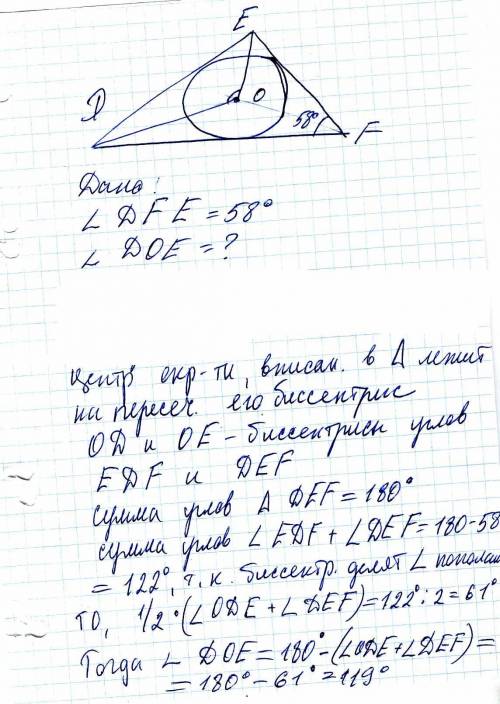 E
D
O
58°
F
Дано:
∠ DFE = 58°
∠ DOE = ?
Центр окр-ти, вписан. в Δ лежит
на пересеч. его биссектрис
OD и OE - биссектрисы углов
EDF и DEF
Сумма углов Δ DEF = 180°
Сумма углов ∠ EDF + ∠DEF = 180-58
= 122°, т. к. биссектр. делят ∠ пополам
то, 1/2 · (∠ODE + ∠DEF) = 122° : 2 = 61°
Тогда ∠ DOE = 180° - (∠ODE + ∠DEF) =
= 180° - 61° = 119°